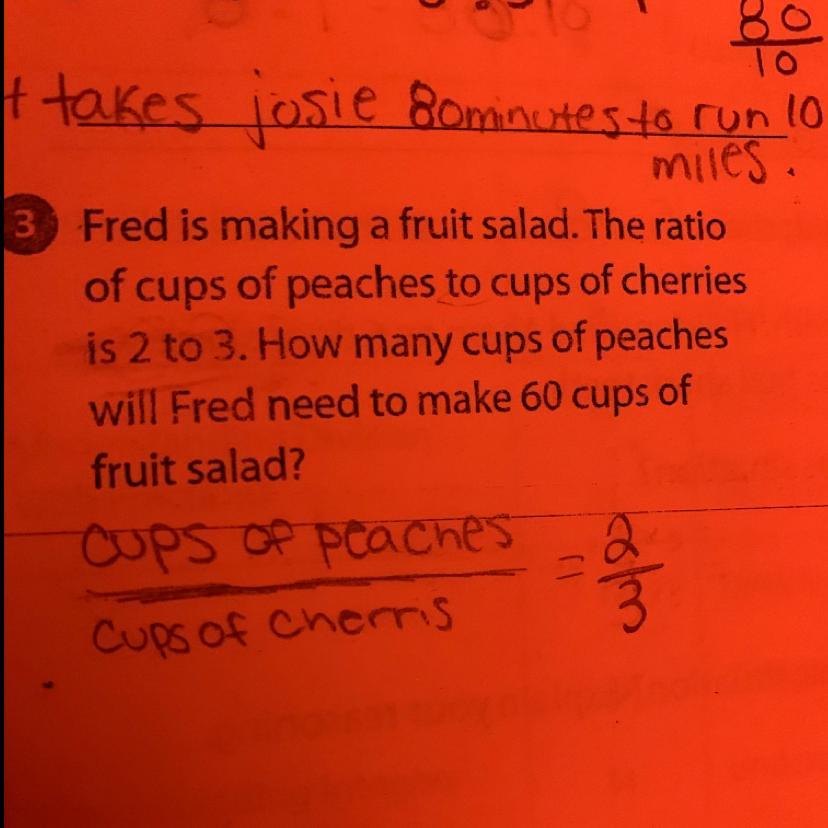 80
10
t takes josie 80minutes to run 10
miles.
3 Fred is making a fruit salad. The ratio
of cups of peaches to cups of cherries
is 2 to 3. How many cups of peaches
will Fred need to make 60 cups of
fruit salad?
cups of peaches = 2
cups of cherris 3